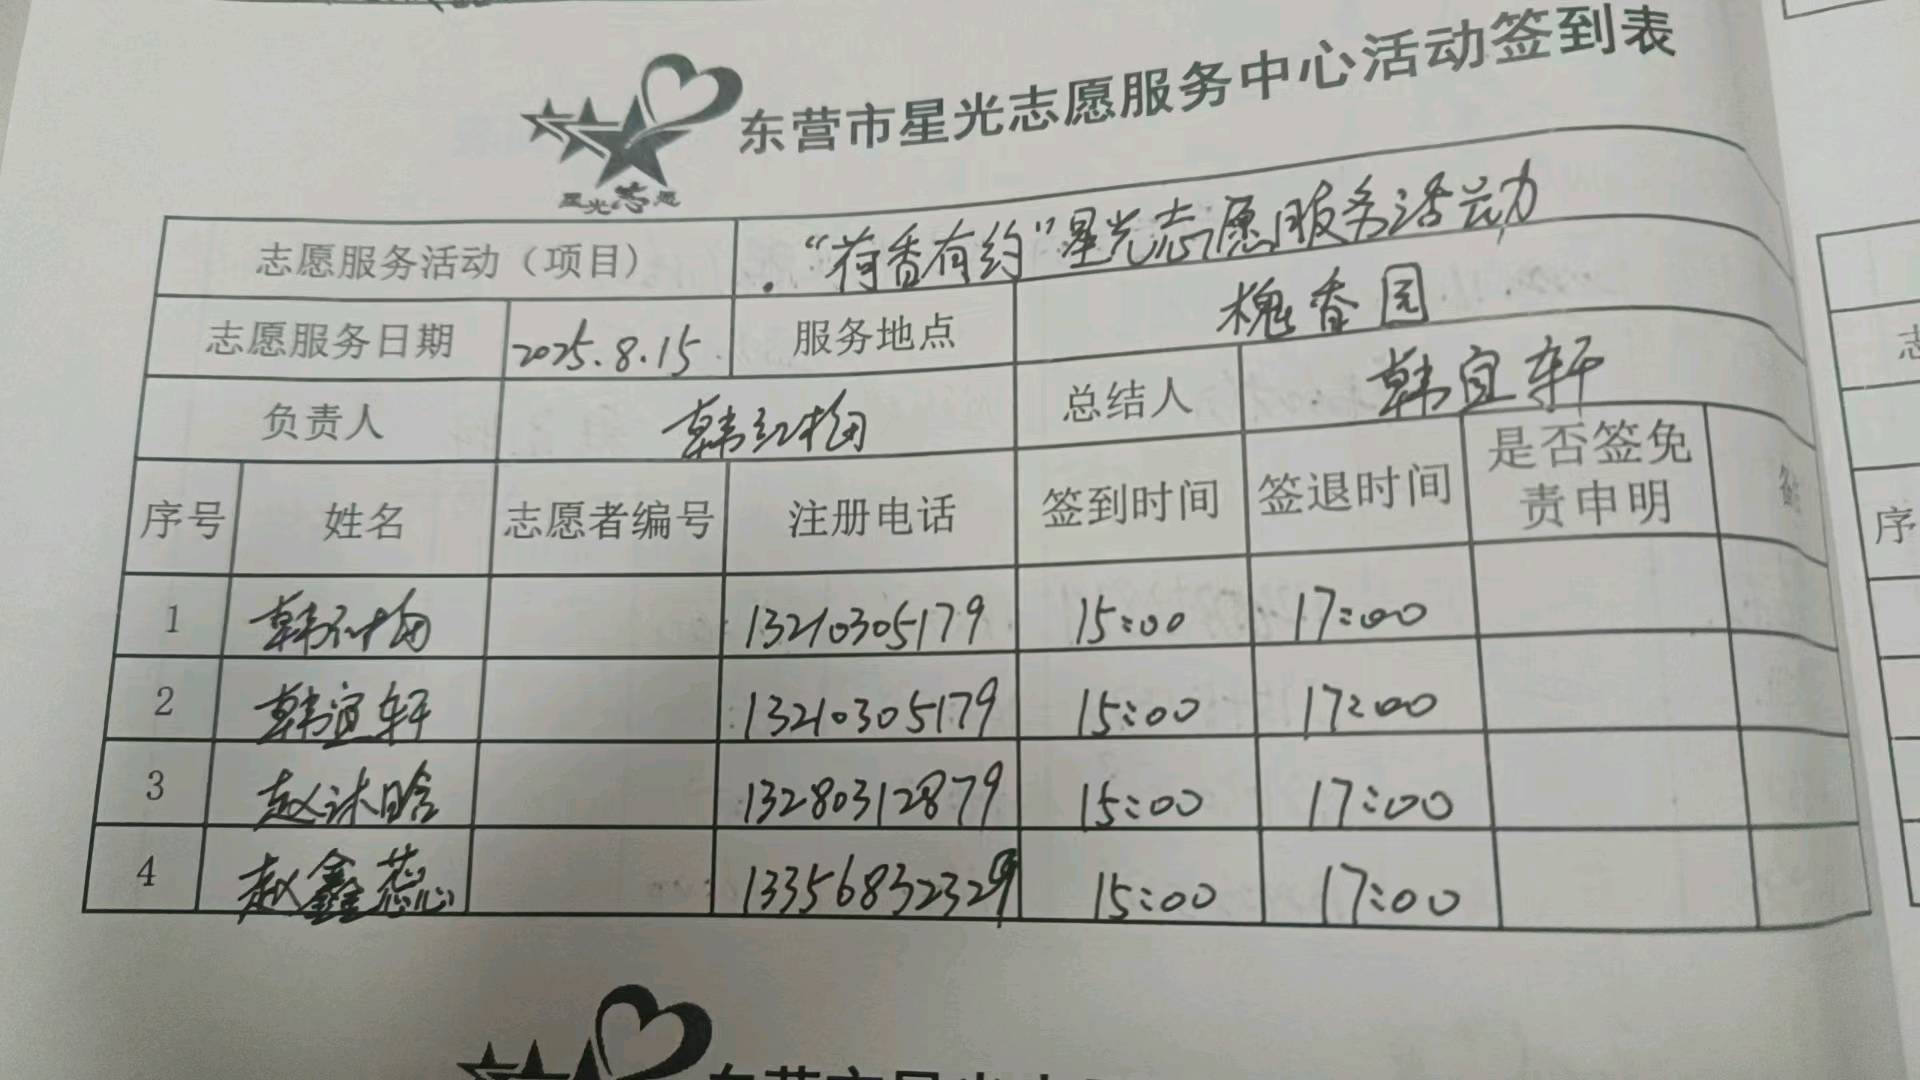 东营市星光志愿服务中心活动签到表
星光志愿
志愿服务活动（项目） “荷香有约”星光志愿服务活动
志愿服务日期 2025.8.15 服务地点 槐香园
负责人 韩红梅 总结人 韩宜轩
序号 姓名 志愿者编号 注册电话 签到时间 签退时间 是否签免责申明 备注
1 韩红梅 13210305179 15:00 17:00
2 韩宜轩 13210305179 15:00 17:00
3 赵沐晗 13280312879 15:00 17:00
4 赵鑫蕊 13356832329 15:00 17:00
志
序
东营市星光志